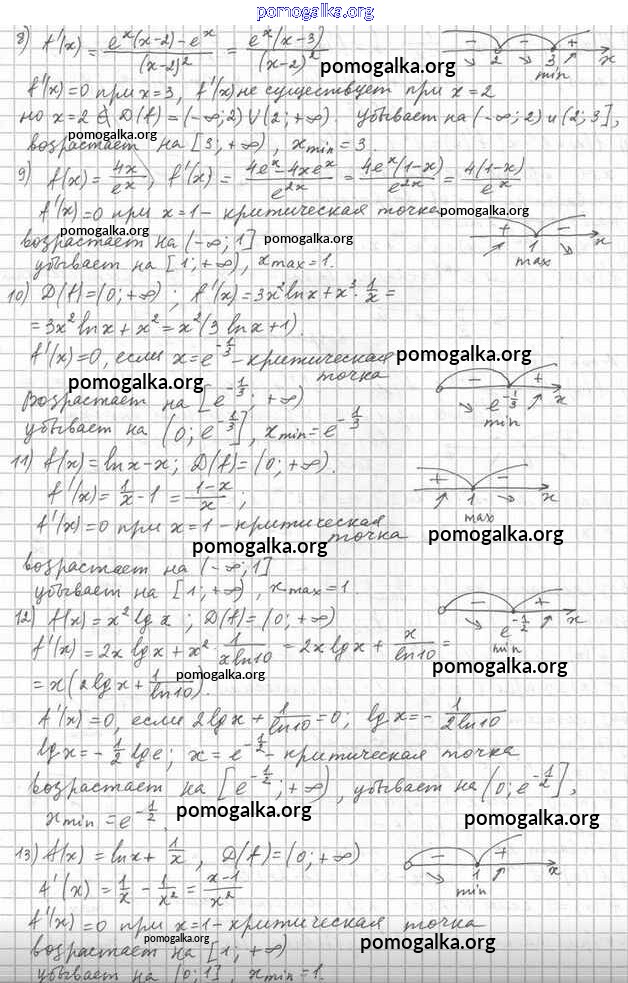 pomogalka.org
8) f'(x) = (e^x(x-2) - e^x)/(x-2)^2 = e^x(x-3)/(x-2)^2
− 2 − 3 + x
min
pomogalka.org
f'(x)=0 при x=3, f'(x) не существует при x=2
но x=2 ∉ D(f) = (-∞; 2) ∪ (2; +∞). убывает на (-∞; 2) и (2; 3],
pomogalka.org
возрастает на [3; +∞), x min = 3.
pomogalka.org
9) f(x) = 4x/e^x, f'(x) = (4e^x - 4xe^x)/e^{2x} = 4e^x(1-x)/e^{2x} = 4(1-x)/e^x
f'(x)=0 при x=1 - критическая точка
pomogalka.org
+ 1 − x
max
pomogalka.org
возрастает на (-∞; 1]
pomogalka.org
убывает на [1; +∞), x max = 1.
10) D(f)=(0; +∞); f'(x)=3x^2 ln x + x^3 · 1/x =
= 3x^2 ln x + x^2 = x^2(3 ln x + 1).
f'(x)=0, если x = e^{-1/3} - критическая
точка
pomogalka.org
pomogalka.org
− e^{-1/3} + x
min
возрастает на [e^{-1/3}; +∞)
убывает на (0; e^{-1/3}], x min = e^{-1/3}
11) f(x) = ln x - x; D(f)=(0; +∞).
f'(x) = 1/x - 1 = (1-x)/x;
+ 1 − x
max
f'(x)=0 при x=1 - критическая
точка
pomogalka.org
pomogalka.org
возрастает на (-∞; 1]
убывает на [1; +∞), x max = 1.
12) f(x) = x^2 lg x; D(f)=(0; +∞)
− e^{-1/2} + x
min
f'(x) = 2x lg x + x^2 · 1/(x ln 10) = 2x lg x + x/ln 10 =
pomogalka.org
pomogalka.org
= x(2 lg x + 1/ln 10).
f'(x)=0, если 2 lg x + 1/ln 10 = 0; lg x = - 1/(2 ln 10)
lg x = - 1/2 lg e; x = e^{-1/2} - критическая точка
возрастает на [e^{-1/2}; +∞), убывает на (0; e^{-1/2}],
x min = e^{-1/2}
pomogalka.org
pomogalka.org
13) f(x) = ln x + 1/x, D(f)=(0; +∞)
− 1 + x
min
f'(x) = 1/x - 1/x^2 = (x-1)/x^2
f'(x)=0 при x=1 - критическая точка
pomogalka.org
pomogalka.org
возрастает на [1; +∞)
убывает на (0; 1], x min = 1.